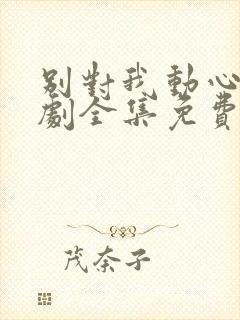 別對我動心
劇全集免費
茂奈子